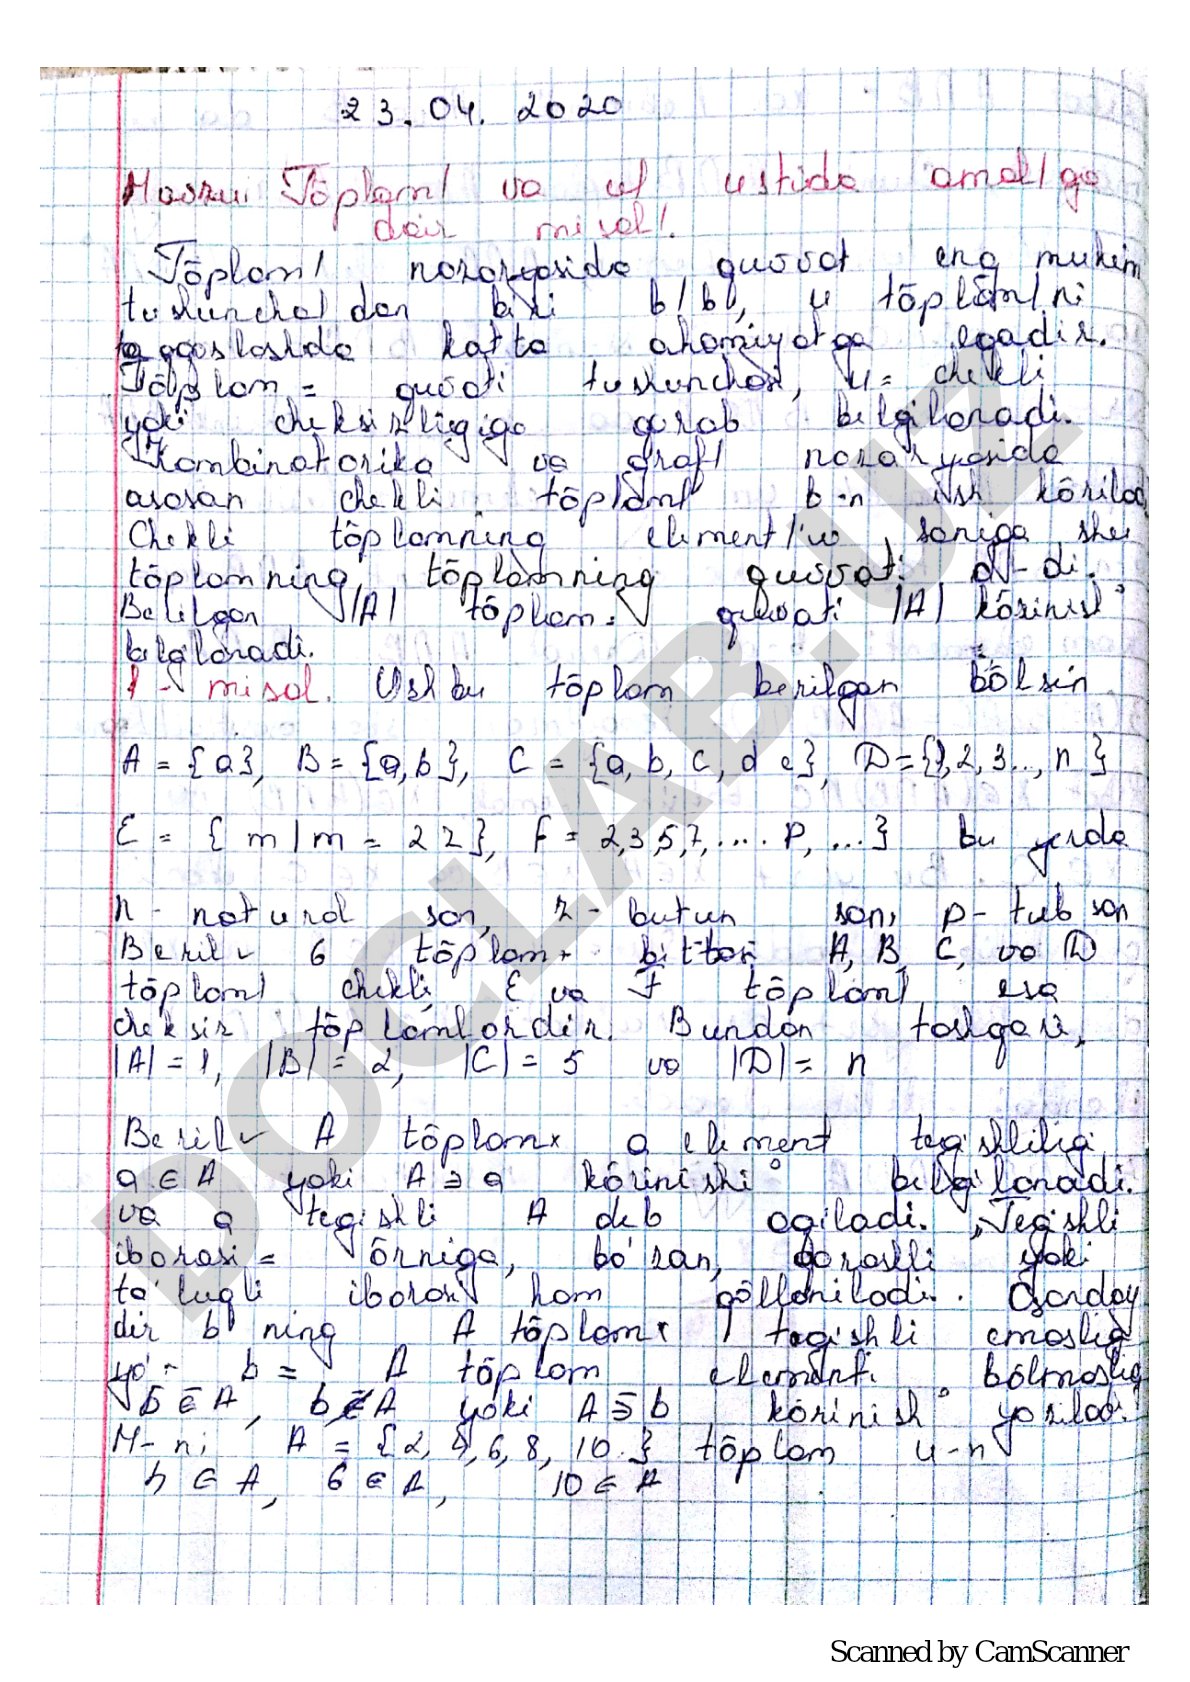 23.04.2020
Mavzu. Tōplam/ va ul ustida amal/ga
dair misol/.
Tōplam/ nazaryasida quvvat eng muhim
tushuncha/dan biri b/b/, u tōplam/ni
taqqoslashda katta ahamiyatga egadir.
Tōplam= quvati tushunchasi, u= chekli
yoki cheksizligiga qarab belgilanadi.
Kombinatorika va graf/ nazaryasida
asosan chekli tōplam/ b-n ish kōrilad
Chekli tōplamning element/i soniga shu
tōplamning tōplamning quvvati d-di.
Berilgan |A| tōplam= quvvati |A| kōrinish°
belgilanadi.
1- misol. Ushbu tōplam berilgan bōlsin
A = {a}, B = {a,b}, C = {a, b, c, d e}, D={1,2,3..,n}
E = { m / m = 2 Z}, F = 2,3,5,7,.... P, ...} bu yerda
n- natural son, z- butun son, p- tub son
Beril 6 tōplam bittasi A, B, C, va D
tōplam/ chekli, E va F tōplam/ esa
cheksiz tōplamlardir. Bundan tashqari,
|A| = 1, |B| = 2, |C| = 5 va |D| = n
Beril A tōplam a element tegishliligi
a ∈ A yoki A ∋ a kōrinishi° belgilanadi.
va a tegishli A deb oqiladi. „Tegishli
iborasi= ōrniga, bo'zan, qarashli yoki
ta'luqli iborasi ham qōllaniladi. Qanday
dir b ning A tōplam tegishli emaslig
yo'- b = A tōplam elementi bōlmaslig
b ∈̄ A, b∉A yoki A ∋̄ b kōrinish° yoziladi.
M-ni A = {2, 4, 6, 8, 10.} tōplam u-n
4 ∈ A, 6 ∈ A, 10 ∈ A
DOCLAB.UZ
Scanned by CamScanner